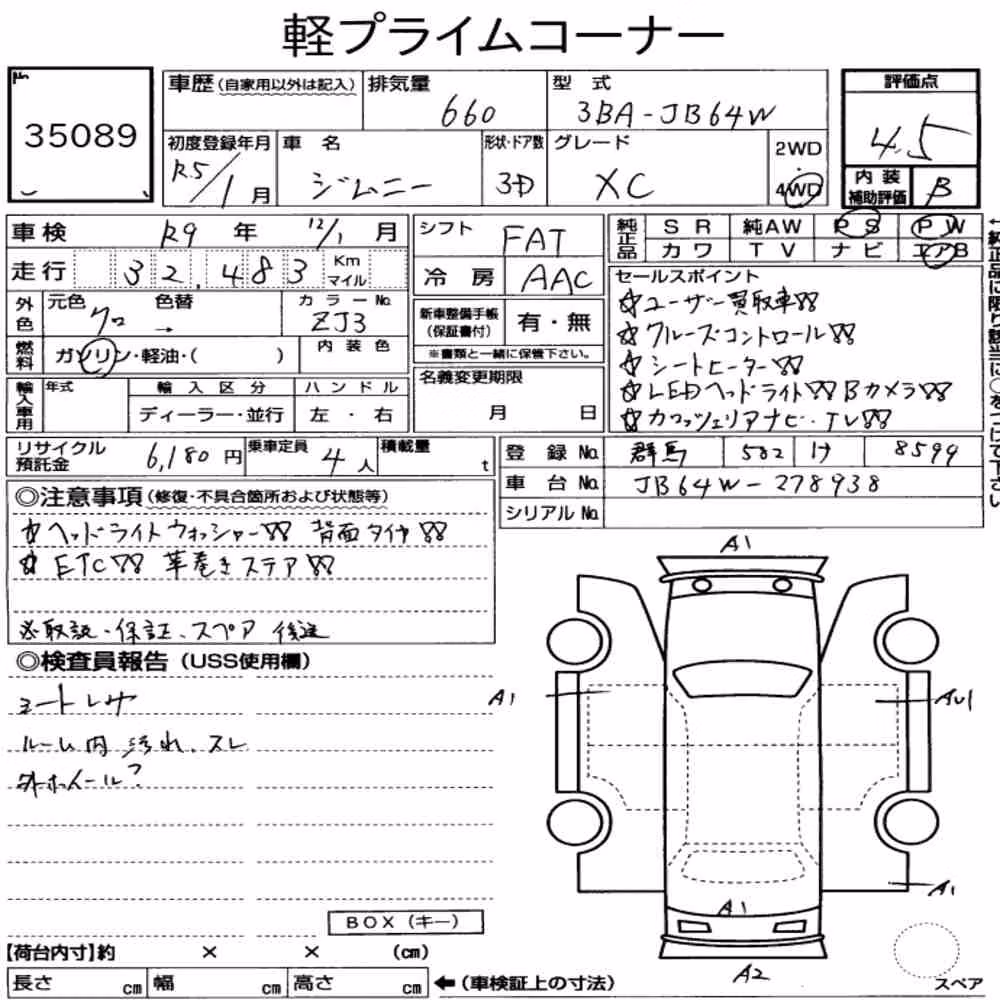 軽プライムコーナー
35089
車歴(自家用以外は記入)
排気量 660
型式 3BA-JB64W
評価点 4.5
初度登録年月 R5/1月
車名 ジムニー
形状・ドア数 3D
グレード XC
2WD・4WD
内装補助評価 B
車検 R9年 12/1月
走行 32,483 Km マイル
シフト FAT
冷房 AAC
純正品 SR 純AW PS PW
カワ TV ナビ エアB
←純正品に限り該当に○をつけて下さい
外色 元色 クロ 色替 → カラーNo. ZJ3
燃料 ガソリン・軽油・( ) 内装色
新車整備手帳(保証書付) 有・無
※書類と一緒に保管下さい。
セールスポイント
☆ユーザー買取車!!
☆クルーズコントロール!!
☆シートヒーター!!
☆LEDヘッドライト!!Bカメラ!!
☆カロッツェリアナビ・TV!!
輸入車用 年式 輸入区分 ディーラー・並行 ハンドル 左・右
名義変更期限 月 日
リサイクル預託金 6,180円
乗車定員 4人
積載量 t
登録No. 群馬 582 け 8599
車台No. JB64W-278938
シリアルNo.
◎注意事項(修復・不具合箇所および状態等)
☆ヘッドライトウォッシャー!! 背面タイヤ!!
☆ETC!! 革巻きステア!!
※取説・保証、スペア 後送
◎検査員報告(USS使用欄)
シートレザ
ルーム内 汚れ、スレ
外ホイール?
A1
A1
AU1
A1
A1
A2
BOX(キー)
【荷台内寸】約 × × (cm)
長さ cm 幅 cm 高さ cm ←(車検証上の寸法)
スペア